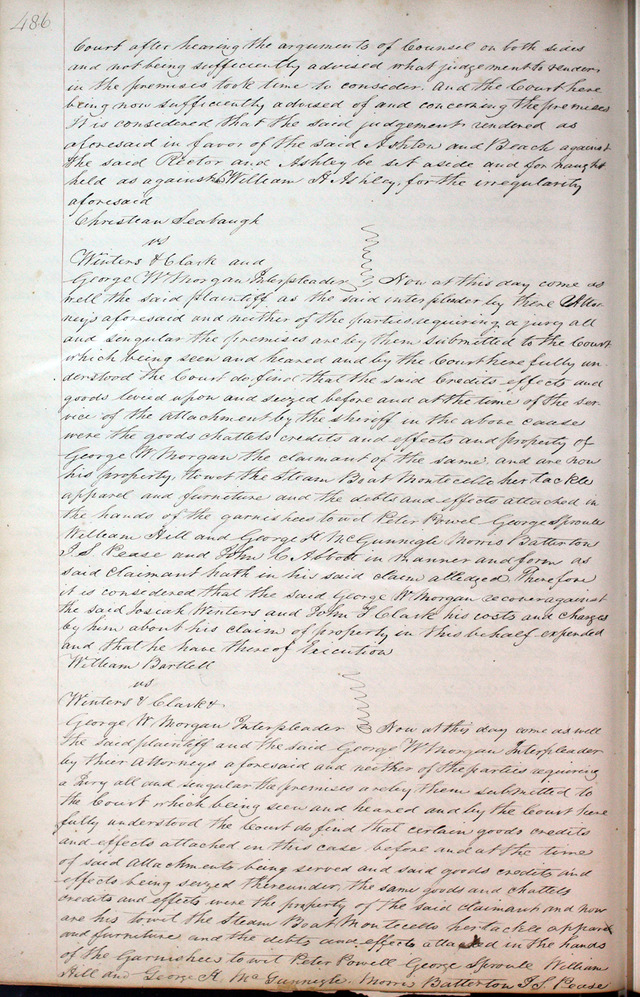 486
Court after hearing the arguments of Counsel on both sides
and not being sufficiently advised what judgement to render
in the premises took time to consider. And the Court here
being now sufficiently advised of and concerning the premises
It is considered that the said judgement rendered as
aforesaid in favor of the said Ashton and Beach against
the said Rector and Ashley be set aside and for naught
held as against William H Ashley, for the irregularity
aforesaid
Christean Seabaugh
vs
Winters & Clark and
George W Morgan Interpleader Now at this day come as
well the said plaintiff as the said interpleder by there Attor
neys aforesaid and neither of the parties requiring a jury all
and singular the premises are by them submitted to the Court
which being seen and heared and by the Court here fully un-
derstood the Court do find that the said Credits effects and
goods levied upon and seized before and at the time of the ser-
vice of the attachment by the sheroff in the above cause
were the goods chattels credits and effects and property of
George W Morgan the claimant of the same, and are now
his property, to wit the Steam Boat Montecello her tackle
apparel and furneture and the debts and effects attached in
the hands of the garnishees to wit Peter Powel George Sproule
William Hill and George H McGunnegle Morris Batterton
J. S. Pease and John C Abbott in manner and form as
said claimant hath in his said claim alledged Therefore
it is considered that the said George W Morgan recover against
the said Josiah Winters and John F Clark his costs and charges
by him about his claim of property in this behalf expended
and that he have thereof Execution
William Bartlell
vs
Winters & Clark &
George W. Morgan Interpleader Now at this day come as well
the said plaintiff and the said George W Morgan Interpleader
by thier Attorneys aforesaid and neither of the parties requiring
a Jury all and singular the premises are by them submitted to
the Court which being seen and heared and by the Court here
fully understood the Court do find that certain goods credits
and effects attached in this case before and at the time
of said attachments being served and said goods credits and
effects being seized thereunder, the same goods and chattels
credits and effects were the property of the said claimant and now
are his to wit the Steam Boat Montecello her tackle apparel
and furneture and the debts and effects attached in the hands
of the Garnishees to wit Peter Powell George Sproule William
Hill and George H. McGunnegle Morris Batterton J. S. Pease